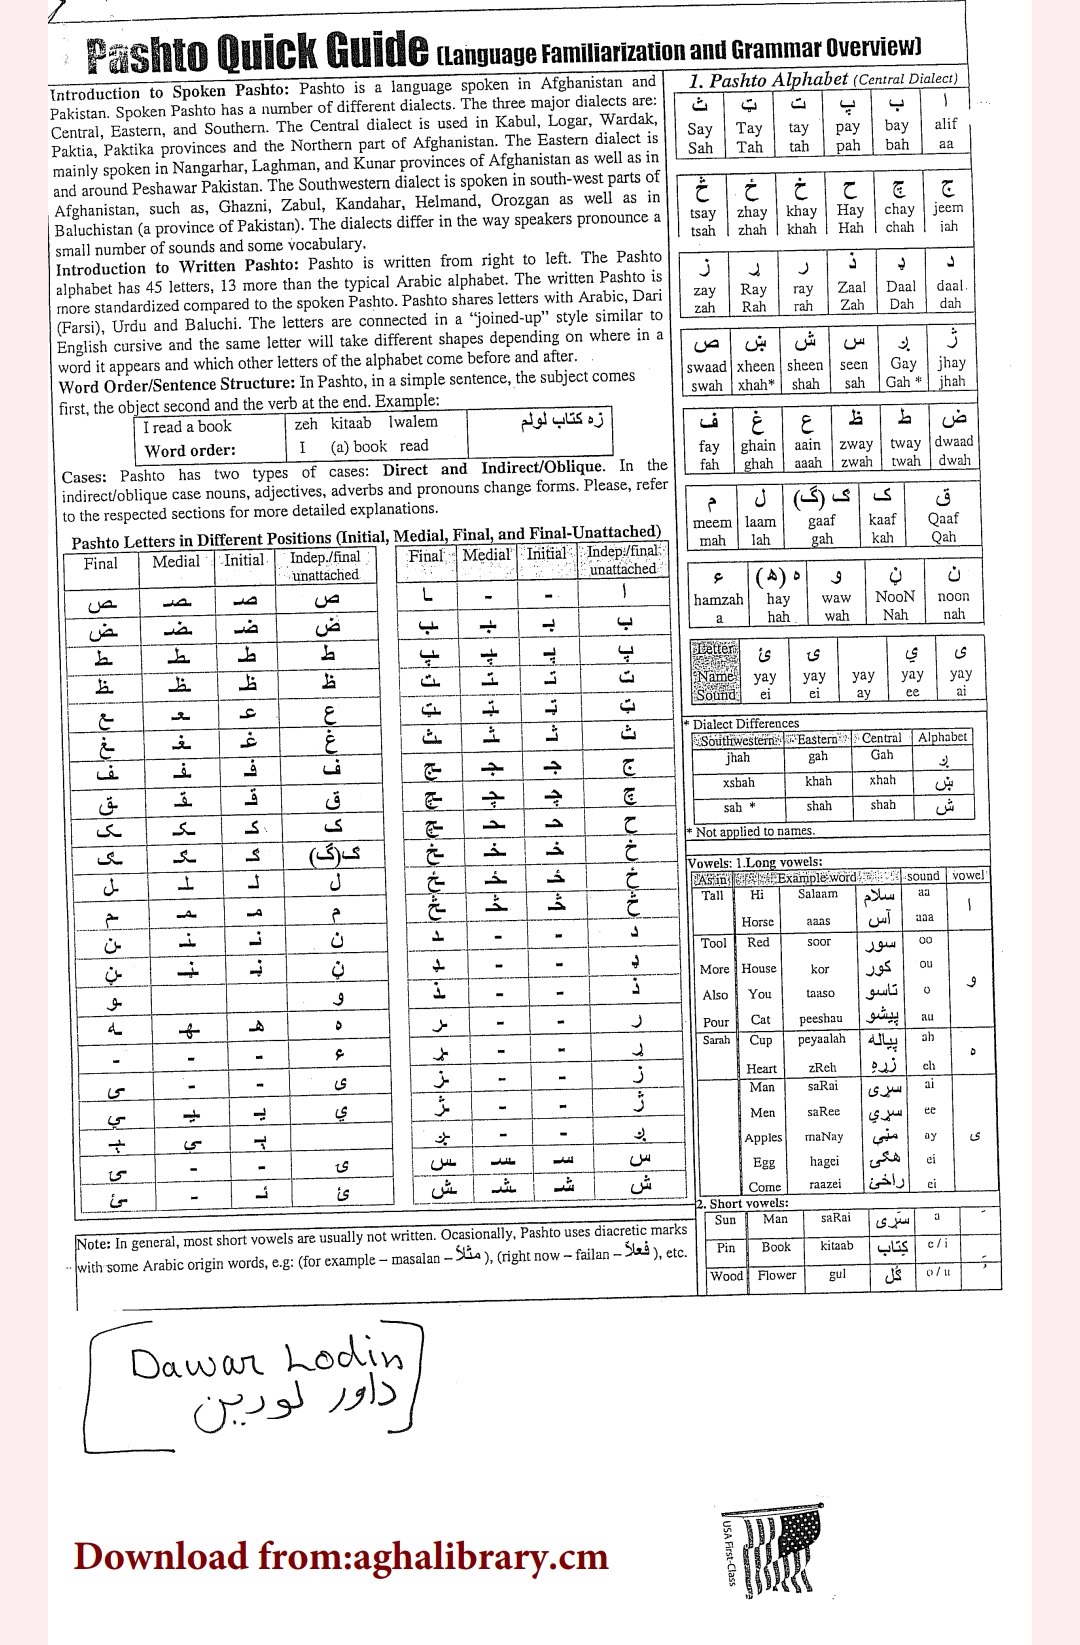 Pashto Quick Guide (Language Familiarization and Grammar Overview)
Introduction to Spoken Pashto: Pashto is a language spoken in Afghanistan and
Pakistan. Spoken Pashto has a number of different dialects. The three major dialects are:
Central, Eastern, and Southern. The Central dialect is used in Kabul, Logar, Wardak,
Paktia, Paktika provinces and the Northern part of Afghanistan. The Eastern dialect is
mainly spoken in Nangarhar, Laghman, and Kunar provinces of Afghanistan as well as in
and around Peshawar Pakistan. The Southwestern dialect is spoken in south-west parts of
Afghanistan, such as, Ghazni, Zabul, Kandahar, Helmand, Orozgan as well as in
Baluchistan (a province of Pakistan). The dialects differ in the way speakers pronounce a
small number of sounds and some vocabulary.
Introduction to Written Pashto: Pashto is written from right to left. The Pashto
alphabet has 45 letters, 13 more than the typical Arabic alphabet. The written Pashto is
more standardized compared to the spoken Pashto. Pashto shares letters with Arabic, Dari
(Farsi), Urdu and Baluchi. The letters are connected in a "joined-up" style similar to
English cursive and the same letter will take different shapes depending on where in a
word it appears and which other letters of the alphabet come before and after.
Word Order/Sentence Structure: In Pashto, in a simple sentence, the subject comes
first, the object second and the verb at the end. Example:
I read a book zeh kitaab lwalem زه کتاب لولم
Word order: I (a) book read
Cases: Pashto has two types of cases: Direct and Indirect/Oblique. In the
indirect/oblique case nouns, adjectives, adverbs and pronouns change forms. Please, refer
to the respected sections for more detailed explanations.
Pashto Letters in Different Positions (Initial, Medial, Final, and Final-Unattached)
Final Medial Initial Indep./final unattached
ـص ـصـ صـ ص
ـض ـضـ ضـ ض
ـط ـطـ طـ ط
ـظ ـظـ ظـ ظ
ـع ـعـ عـ ع
ـغ ـغـ غـ غ
ـف ـفـ فـ ف
ـق ـقـ قـ ق
ـک ـکـ کـ ک
ـګ ـګـ ګـ ګ(گ)
ـل ـلـ لـ ل
ـم ـمـ مـ م
ـن ـنـ نـ ن
ـڼ ـڼـ ڼـ ڼ
ـو و
ـه ـهـ هـ ه
- - - ء
ـی - - ی
ـي ـيـ يـ ي
ـې ـېـ ېـ
ـۍ - - ۍ
ـئ - ئـ ئ
Final Medial Initial Indep./final unattached
ـا - - ا
ـب ـبـ بـ ب
ـپ ـپـ پـ پ
ـت ـتـ تـ ت
ـټ ـټـ ټـ ټ
ـث ـثـ ثـ ث
ـج ـجـ جـ ج
ـچ ـچـ چـ چ
ـح ـحـ حـ ح
ـخ ـخـ خـ خ
ـځ ـځـ ځـ ځ
ـڅ ـڅـ څـ څ
ـد - - د
ـډ - - ډ
ـذ - - ذ
ـر - - ر
ـړ - - ړ
ـز - - ز
ـژ - - ژ
ـږ - - ږ
ـس ـسـ سـ س
ـش ـشـ شـ ش
Note: In general, most short vowels are usually not written. Ocasionally, Pashto uses diacretic marks
with some Arabic origin words, e.g: (for example – masalan – مثلاً), (right now – failan – فعلاً), etc.
1. Pashto Alphabet (Central Dialect)
ث ټ ت پ ب ا
Say Tay tay pay bay alif
Sah Tah tah pah bah aa
څ ځ خ ح چ ج
tsay zhay khay Hay chay jeem
tsah zhah khah Hah chah jah
ز ړ ر ذ ډ د
zay Ray ray Zaal Daal daal
zah Rah rah Zah Dah dah
ص ښ ش س ږ ژ
swaad xheen sheen seen Gay jhay
swah xhah* shah sah Gah * jhah
ف غ ع ظ ط ض
fay ghain aain zway tway dwaad
fah ghah aaah zwah twah dwah
م ل ګ (گ) ک ق
meem laam gaaf kaaf Qaaf
mah lah gah kah Qah
ء ه (ھ) و ڼ ن
hamzah hay waw NooN noon
a hah wah Nah nah
Letter ئ ۍ ي ی
Name yay yay yay yay yay
Sound ei ei ay ee ai
* Dialect Differences
Southwestern Eastern Central Alphabet
jhah gah Gah ږ
xsbah khah xhah ښ
sah * shah shah ش
* Not applied to names.
Vowels: 1.Long vowels:
As in Example word sound vowel
Tall Hi Salaam سلام aa ا
Horse aaas آس aaa
Tool Red soor سور oo و
More House kor کور ou
Also You taaso تاسو o
Pour Cat peeshau پیشو au
Sarah Cup peyaalah پیاله ah ه
Heart zReh زړه eh
Man saRai سړی ai ی
Men saRee سړي ee
Apples maNay مڼې ay
Egg hagei هګۍ ei
Come raazei راځئ ei
2. Short vowels:
Sun Man saRai سَړی a َ
Pin Book kitaab کِتاب e / i ِ
Wood Flower gul ګُل o / u ُ
Dawar Lodin
داور لودین
USA First-Class
Download from:aghalibrary.cm